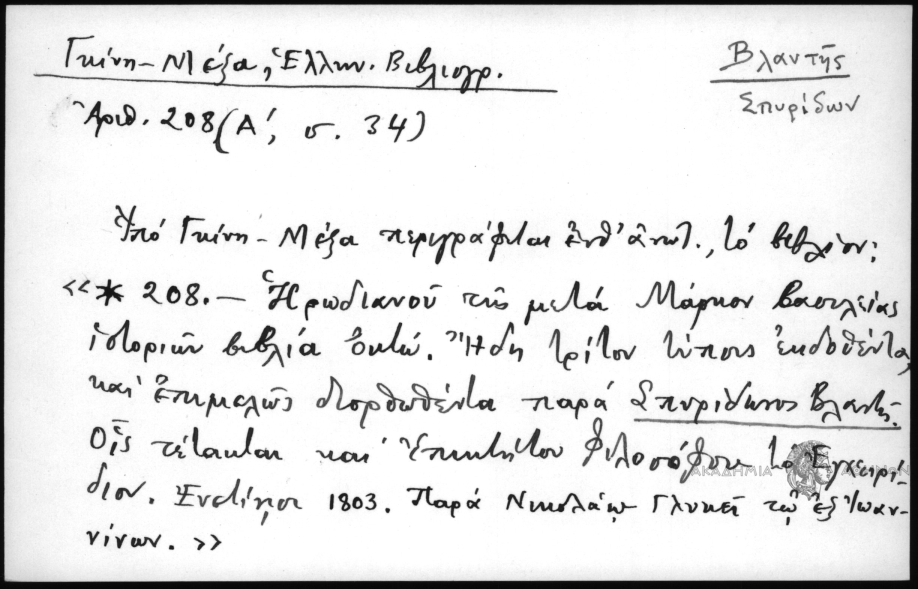 Γκίνη - Μέξα, Ἑλλην. Βιβλιογρ.
Βλαντῆς
Σπυρίδων
Ἀριθ. 208 (Α΄, σ. 34)
Ὑπό Γκίνη - Μέξα περιγράφεται ἐνθ' ἀνωτ., τό βιβλίον:
«* 208. — Ἡρωδιανοῦ τῆς μετά Μάρκον βασιλείας
ἱστοριῶν βιβλία ὀκτώ. Ἤδη τρίτον τύποις ἐκδοθέντα,
καί ἐπιμελῶς διορθωθέντα παρά Σπυρίδωνος Βλαντῆ.
Οἷς τέτακται καί Ἐπικτήτου φιλοσόφου τό Ἐγχειρί-
διον. Ἐνετίησι 1803. Παρά Νικολάῳ Γλυκεῖ τῷ ἐξ Ἰωαν-
νίνων. »
ΑΚΑΔΗΜΙΑ ΑΘΗΝΩΝ